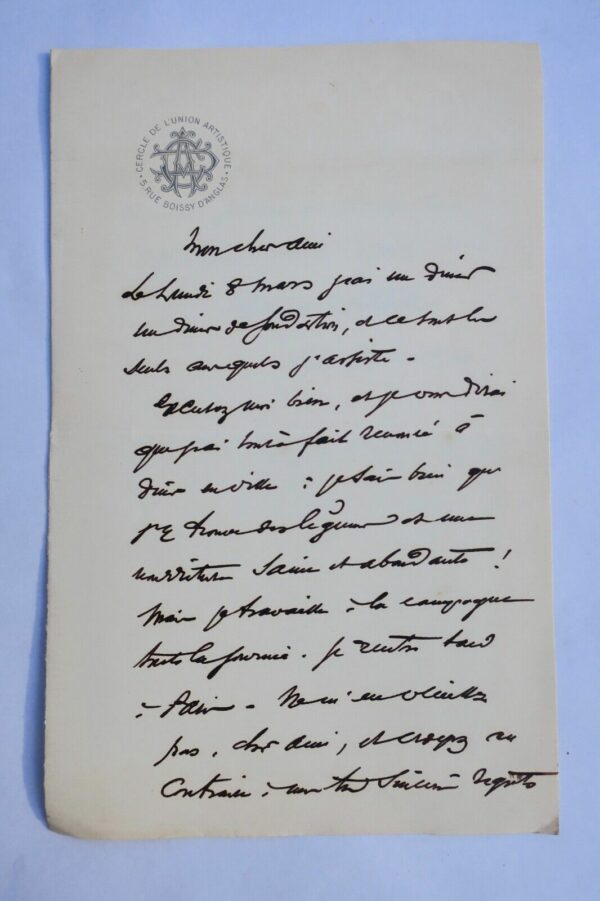 CERCLE DE L'UNION ARTISTIQUE
5 RUE BOISSY D'ANGLAS
Mon cher ami
Le lundi 8 mars j'ai un dîner
un dîner de fondation, et ce sont les
seuls auxquels j'assiste.
Excusez moi bien, et je vous dirai
que j'ai tout à fait renoncé à
dîner en ville : je sais bien que
j'y trouve des légumes et une
nourriture saine et abondante !
Mais je travaille à la campagne
toute la journée. Je rentre tard
à Paris. Ne m'en veuillez
pas, cher ami, et croyez au
contraire à mes très sincères regrets